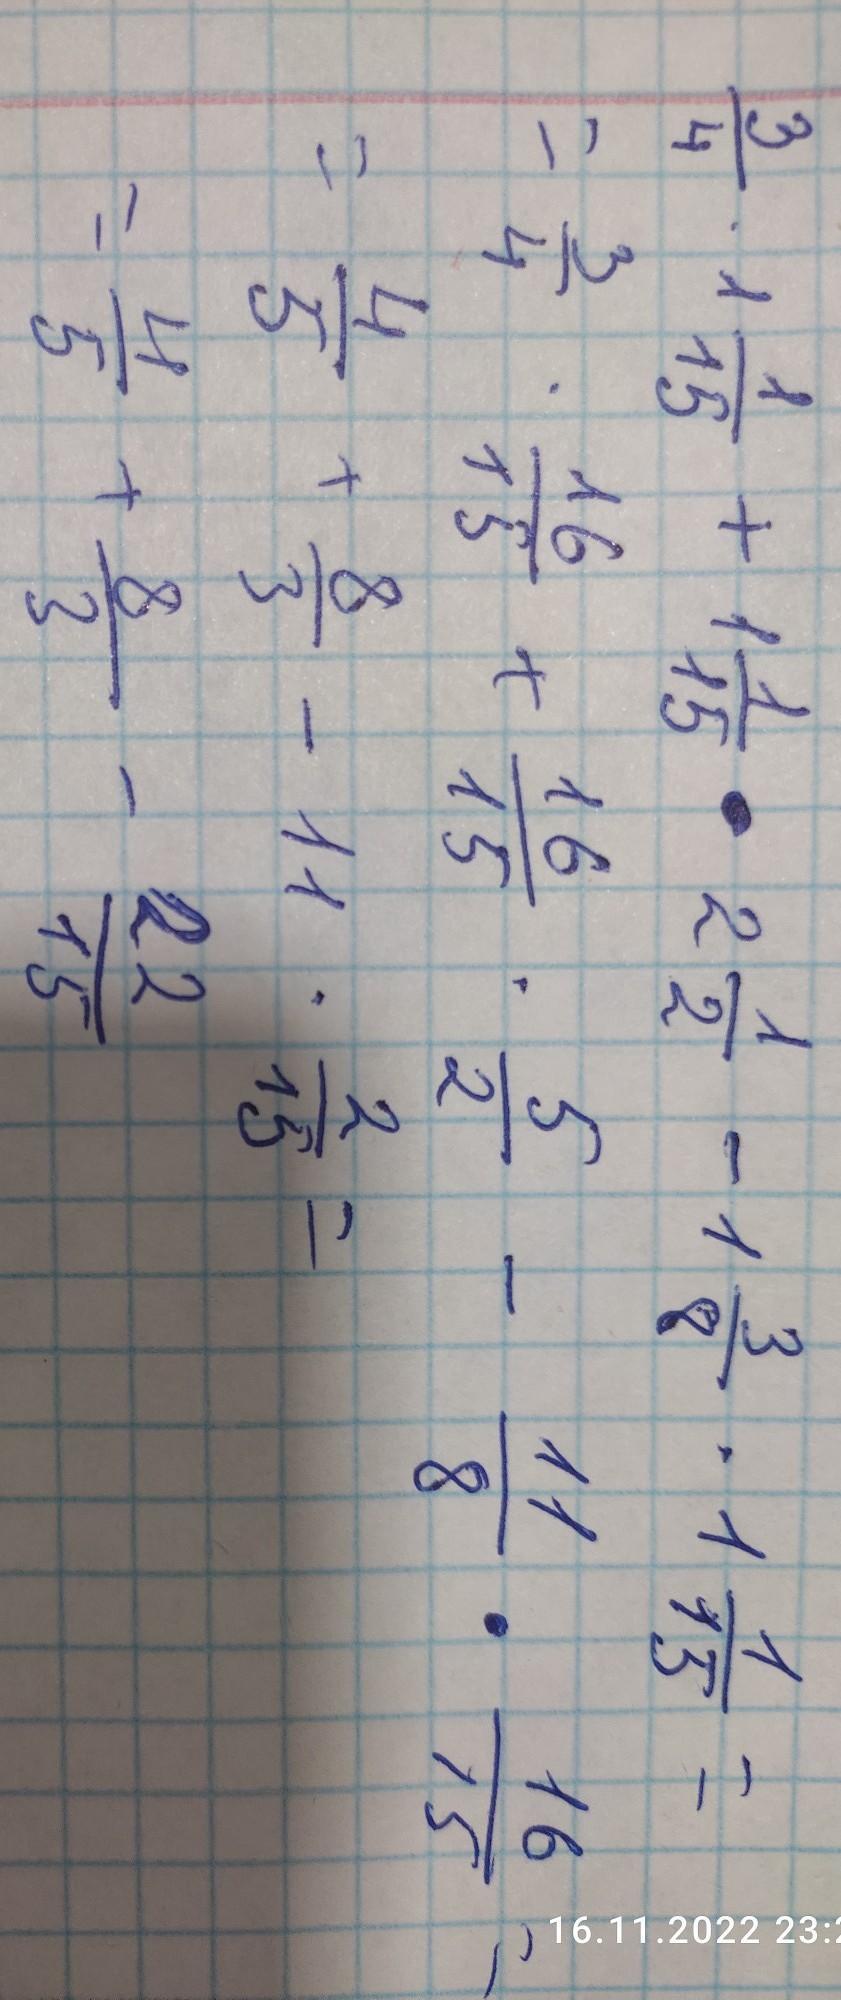 3/4 · 1 1/15 + 1 1/15 · 2 1/2 - 1 3/8 · 1 1/15 =
= 3/4 · 16/15 + 16/15 · 5/2 - 11/8 · 16/15 =
= 4/5 + 8/3 - 11 · 2/15 =
= 4/5 + 8/3 - 22/15
16.11.2022 23:2